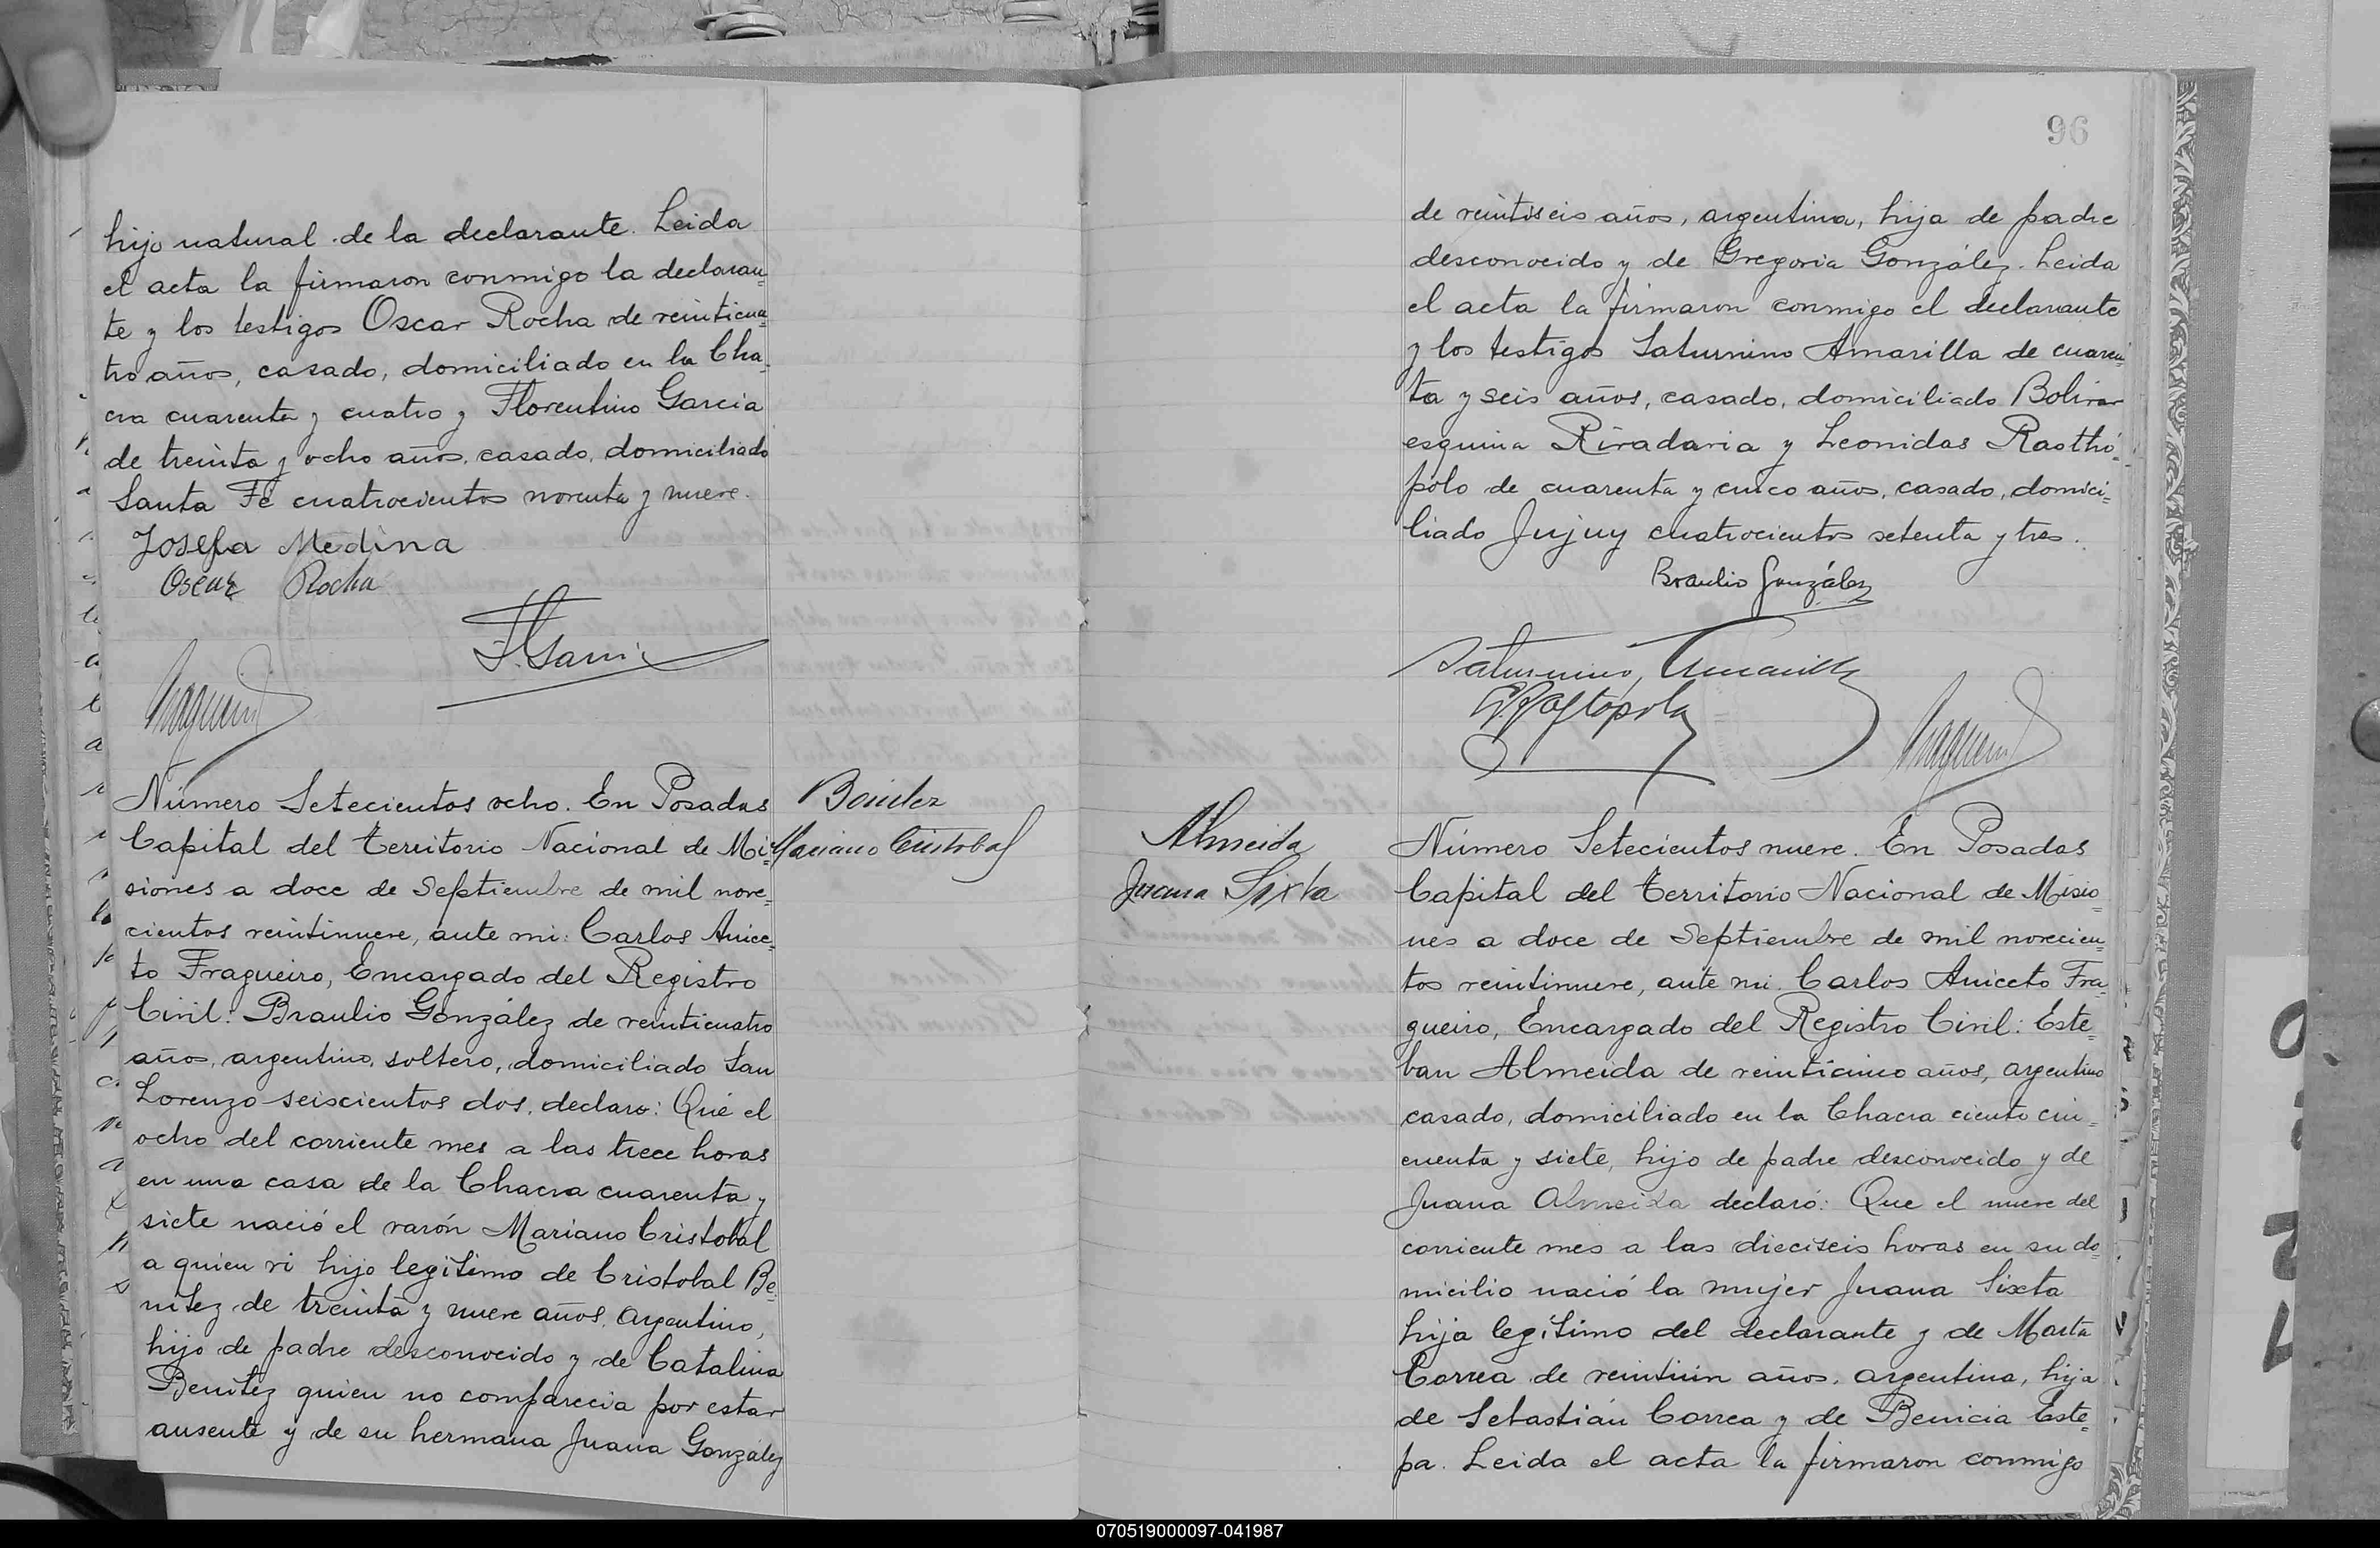 hijo natural de la declarante. Leida
el acta la firmaron conmigo la declaran=
te y los testigos Oscar Rocha de veinticua=
tro años, casado, domiciliado en la Cha=
cra cuarenta y cuatro y Florentino Garcia
de treinta y ocho años, casado, domiciliado
Santa Fé cuatrocientos noventa y nueve.
Josefa Medina
Oscar Rocha
Número Setecientos ocho. En Posadas
Capital del Territorio Nacional de Mi=
siones a doce de Septiembre de mil nove=
cientos veintinueve, ante mi: Carlos Anice=
to Fragueiro, Encargado del Registro
Civil: Braulio González de veinticuatro
años, argentino, soltero, domiciliado San
Lorenzo seiscientos dos, declaro: Qué el
ocho del corriente mes a las trece horas
en una casa de la Chacra cuarenta y
siete nació el varón Mariano Cristobal
a quien vi hijo legítimo de Cristobal Be=
nitez de treinta y nueve años, argentino,
hijo de padre desconocido y de Catalina
Benitez quien no comparecia por estar
ausente y de su hermana Juana González
Benitez
Mariano Cristobal
96
de veintiseis años, argentina, hija de padre
desconocido y de Gregoria González. Leida
el acta la firmaron conmigo el declarante
y los testigos Saturnino Amarilla de cuaren=
ta y seis años, casado, domiciliado Bolivar
esquina Rivadavia y Leonidas Rasthó=
polo de cuarenta y cinco años, casado, domici=
liado Jujuy cuatrocientos setenta y tres.
Braulio González
Saturnino Amarilla
Almeida
Juana Sixta
Número Setecientos nueve. En Posadas
Capital del Territorio Nacional de Misio=
nes a doce de Septiembre de mil novecien=
tos veintinueve, ante mi. Carlos Aniceto Fra=
gueiro, Encargado del Registro Civil: Este=
ban Almeida de veinticinco años, argentino
casado, domiciliado en la Chacra ciento cin=
cuenta y siete, hijo de padre desconocido y de
Juana Almeida declaró: Que el nueve del
corriente mes a las dieciseis horas en su do=
micilio nació la mujer Juana Sixta
hija legítimo del declarante y de Marta
Correa de veintiún años, argentina, hija
de Sebastián Correa y de Benicia Este=
pa. Leida el acta la firmaron conmigo
070519000097-041987